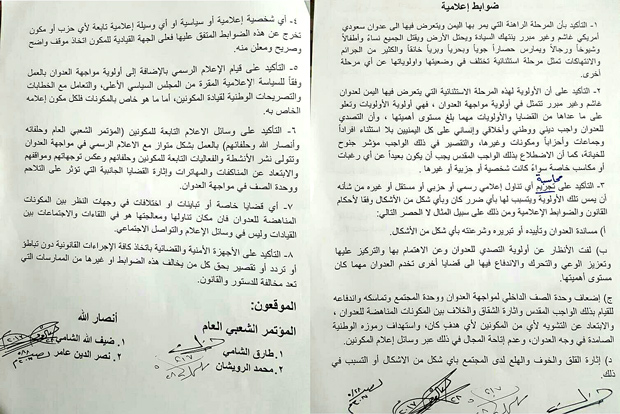 ضوابط إعلامية
١- التأكيد بأن المرحلة الراهنة التي يمر بها اليمن ويتعرض فيها الى عدوان سعودي
أمريكي غاشم وغير مبرر ينتهك السيادة ويحتل الأرض ويقتل الجميع نساءً وأطفالاً
وشيوخاً ورجالاً ويمارس حصاراً جوياً وبحرياً وبرياً خانقاً والكثير من الجرائم
والانتهاكات تمثل مرحلة استثنائية تختلف في وضعيتها واولوياتها عن أي مرحلة
أخرى.
٢- التأكيد على أن الأولوية لهذه المرحلة الاستثنائية التي يتعرض فيها اليمن لعدوان
غاشم وغير مبرر تتمثل في أولوية مواجهة العدوان ، فهي أولوية الأولويات وتعلو
على ما عداها من القضايا والأولويات مهما بلغ مستوى أهميتها ، وأن التصدي
للعدوان واجب ديني ووطني وأخلاقي وإنساني على كل اليمنيين بلا استثناء افراداً
وجماعات وأحزاباً ومكونات وغيرها، والتقصير في ذلك الواجب مؤشر جنوح
للخيانة، كما أن الاضطلاع بذلك الواجب المقدس يجب أن يكون بعيداً عن أي رغبات
أو مكاسب خاصة سواءً كانت شخصية أو حزبية أو غيرها .
محاسبة
٣- التأكيد على تجريم أي تناول إعلامي رسمي أو حزبي أو مستقل أو غيره من شأنه
أن يمس تلك الأولوية ويتسبب لها بأي ضرر كان وبأي شكل من الأشكال وفقا لأحكام
القانون والضوابط الإعلامية ومن ذلك على سبيل المثال لا الحصر التالي:
أ) مساندة العدوان وتأييده أو تبريره وشرعنته بأي شكل من الأشكال.
ب) لفت الأنظار عن أولوية التصدي للعدوان وعن الاهتمام بها والتركيز عليها
وتعزيز الوعي والتحرك والاندفاع فيها الى قضايا أخرى تخدم العدوان مهما كان
مستوى أهميتها.
ج) إضعاف وحدة الصف الداخلي لمواجهة العدوان ووحدة المجتمع وتماسكه واندفاعه
للقيام بذلك الواجب المقدس وإثارة الشقاق والخلاف بين المكونات المناهضة للعدوان ،
والابتعاد عن التشويه لأي من المكونين لأي هدف كان، واستهداف رموزه الوطنية
الصامدة في وجه العدوان، وعدم إتاحة المجال في ذلك عبر وسائل إعلام المكونين.
د) إثارة القلق والخوف والهلع لدى المجتمع بأي شكل من الاشكال أو التسبب في
ذلك.
٤- أي شخصية إعلامية أو سياسية او أي وسيلة إعلامية تابعة لأي حزب أو مكون
تخرج عن هذه الضوابط المتفق عليها فعلى الجهة القيادية للمكون اتخاذ موقف واضح
وصريح ومعلن منه.
٥- التأكيد على قيام الإعلام الرسمي بالإضافة إلى أولوية مواجهة العدوان بالعمل
وفقاً للسياسة الإعلامية المقرة من المجلس السياسي الأعلى، والتعامل مع الخطابات
والتصريحات الوطنية لقيادة المكونين، أما ما هو خاص بالمكونات فلكل مكون إعلامه
الخاص به.
٦- التأكيد على وسائل الاعلام التابعة للمكونين (المؤتمر الشعبي العام وحلفائه
وأنصار الله وحلفائهم) بالعمل بشكل متواز مع الاعلام الرسمي في مواجهة العدوان
وتتولى نشر الأنشطة والفعاليات التابعة للمكونين وحلفائهم وعكس توجهاتهم ومواقفهم
والابتعاد عن المناكفات والمهاترات وإثارة القضايا الجانبية التي تؤثر على التلاحم
ووحدة الصف في مواجهة العدوان.
٧- أي قضايا خاصة أو تباينات او اختلافات في وجهات النظر بين المكونات
المناهضة للعدوان فان مكان تناولها ومعالجتها هو في اللقاءات والاجتماعات بين
القيادات وليس في وسائل الإعلام والتواصل الاجتماعي.
٨- التأكيد على الأجهزة الأمنية والقضائية باتخاذ كافة الإجراءات القانونية دون تباطؤ
أو تردد أو تقصير بحق كل من يخالف هذه الضوابط او غيرها من الممارسات التي
تعد مخالفة للدستور والقانون.
الموقعون:
المؤتمر الشعبي العام
١. طارق الشامي
٢. محمد الرويشان
أنصار الله
١. ضيف الله الشامي
٢. نصر الدين عامر